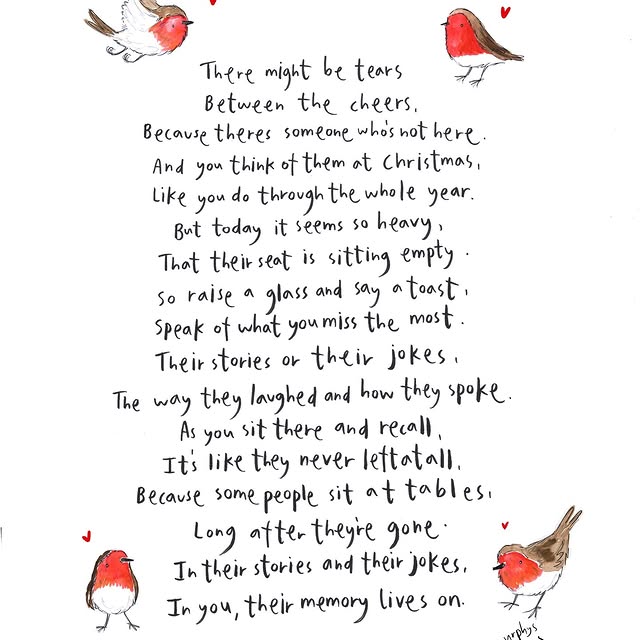 There might be tears
Between the cheers,
Because theres someone who's not here.
And you think of them at Christmas,
Like you do through the whole year.
But today it seems so heavy,
That their seat is sitting empty.
So raise a glass and say a toast,
Speak of what you miss the most.
Their stories or their jokes,
The way they laughed and how they spoke.
As you sit there and recall,
It's like they never left at all,
Because some people sit at tables,
Long after they're gone.
In their stories and their jokes,
In you, their memory lives on.